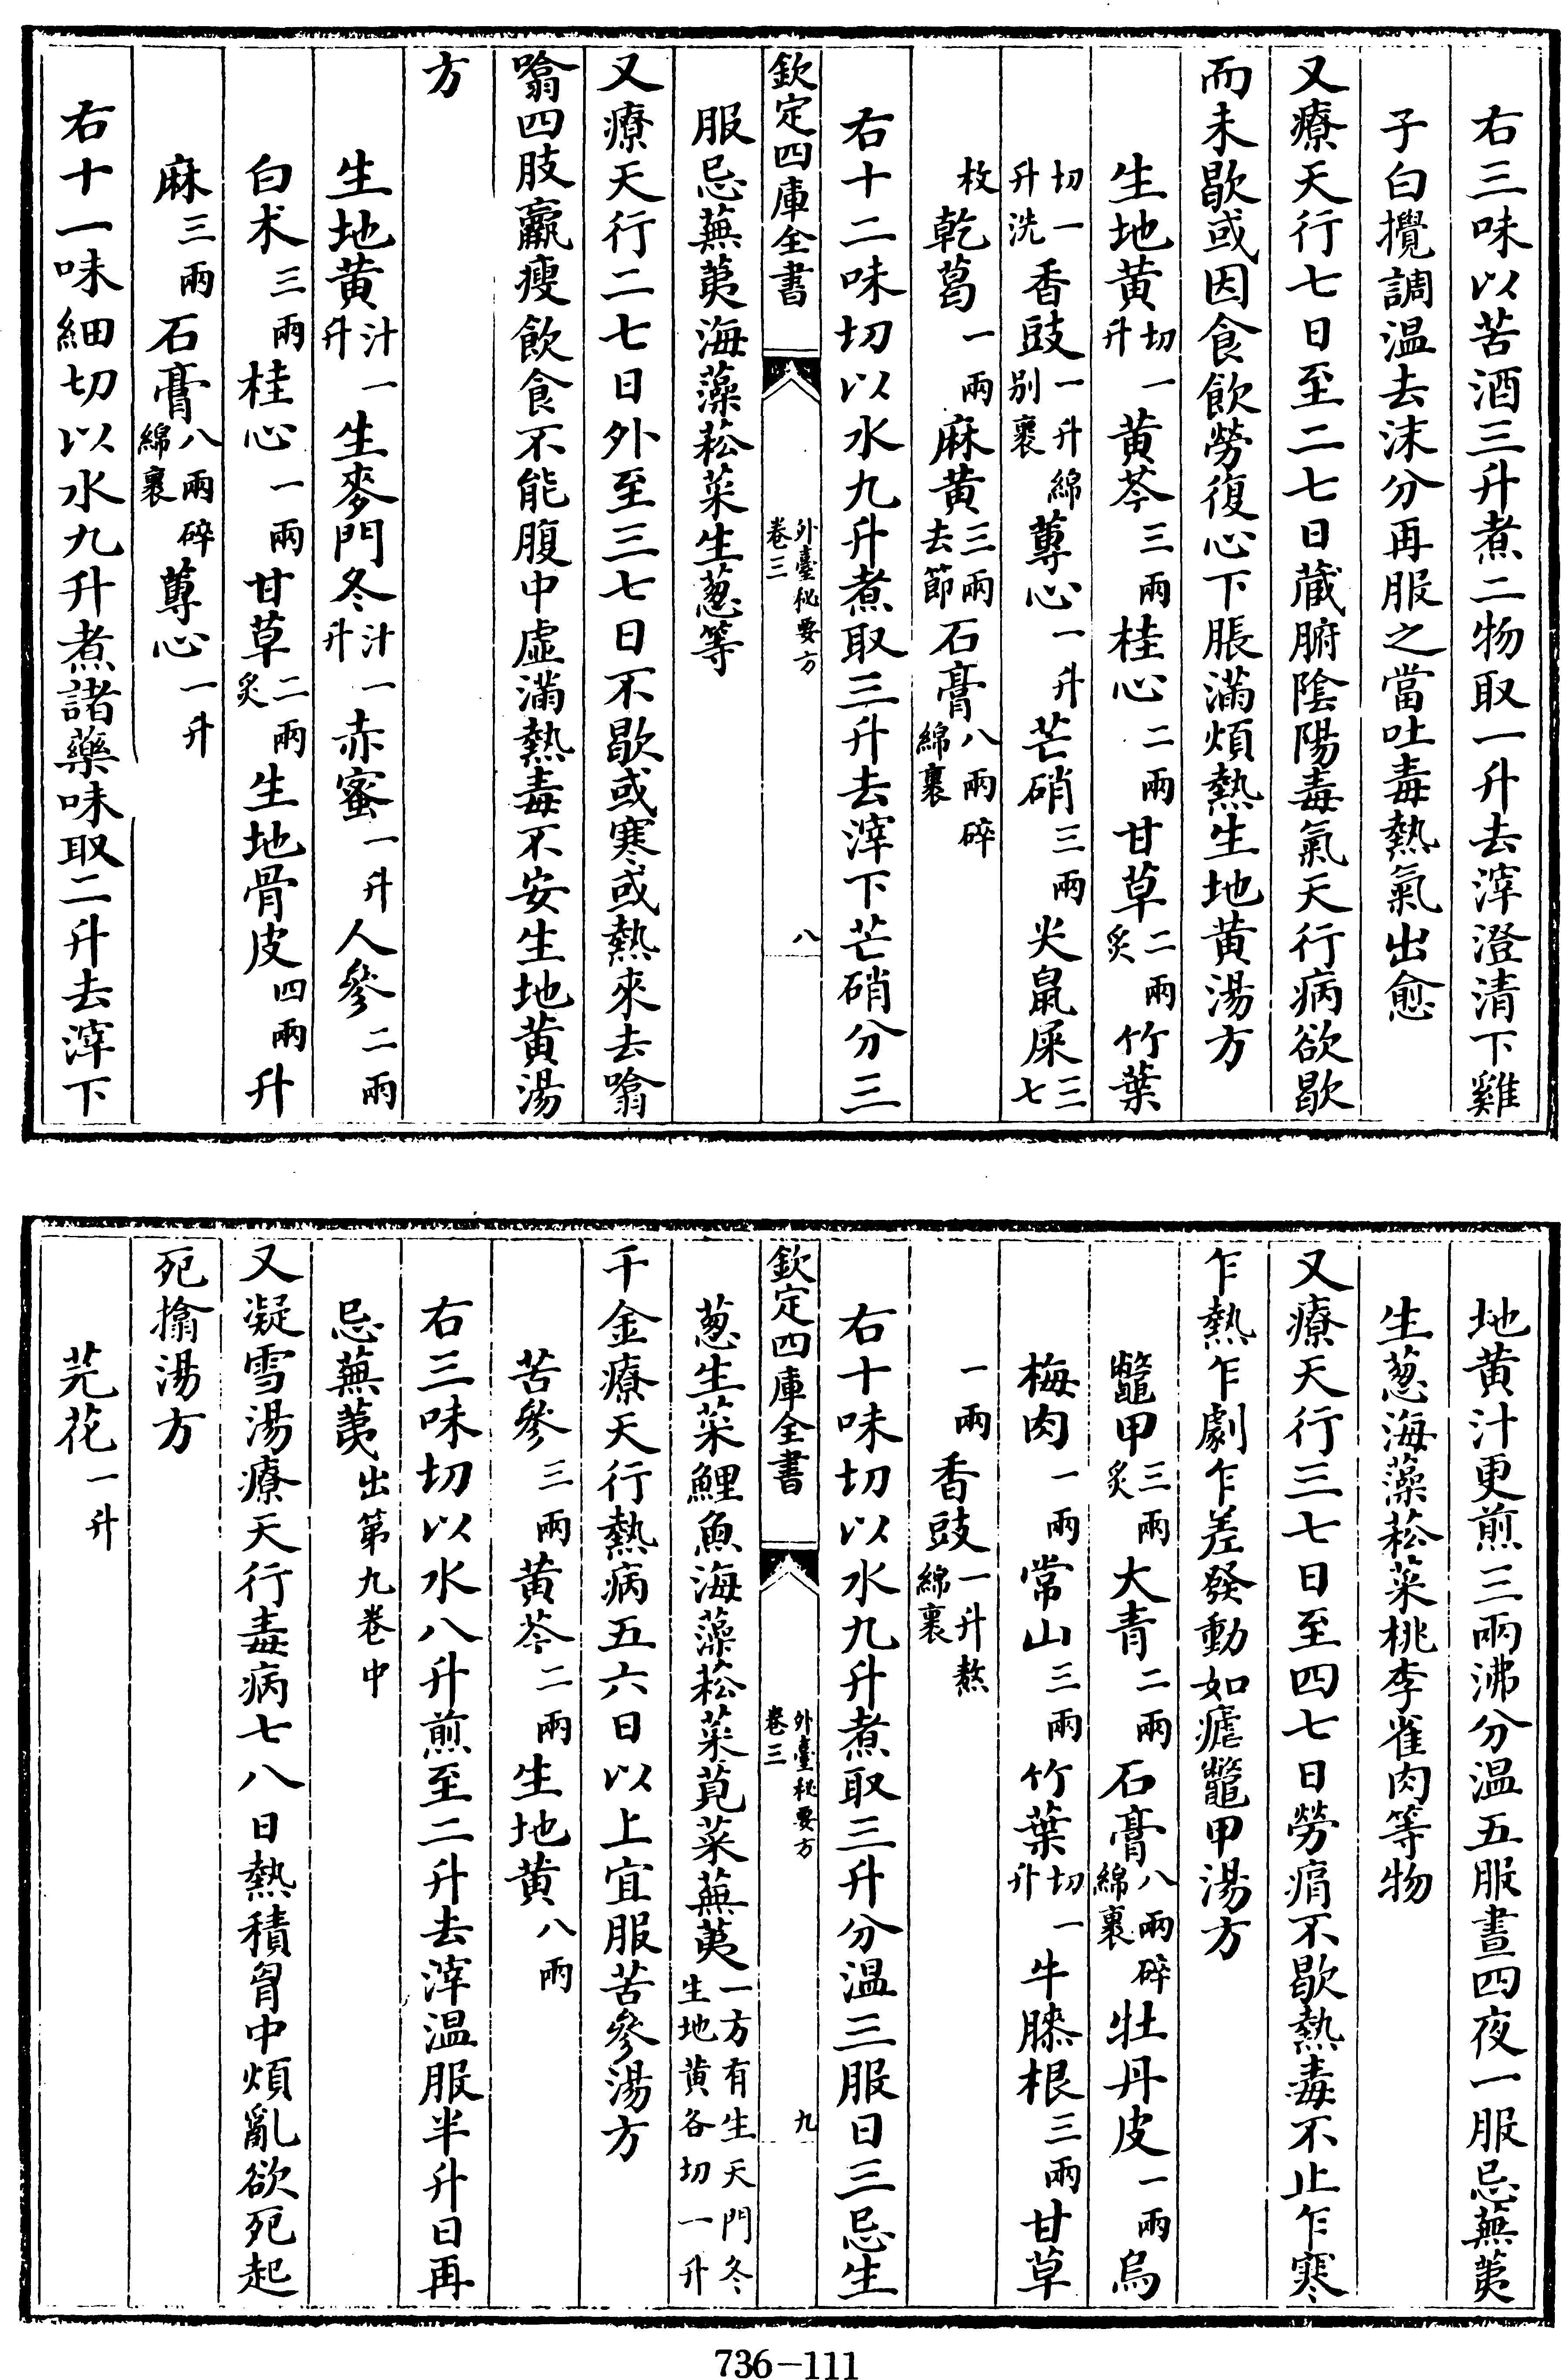 右三味以苦酒三升煮二物取一升去滓澄清下雞
子白攪調温去沫分再服之當吐毒熱氣出愈
又療天行七日至二七日藏腑陰陽毒氣天行病欲歇
而未歇或因食飲勞復心下脹滿煩熱生地黄湯方
生地黄切一升黄芩三兩桂心二兩甘草二兩炙竹葉
切一升洗香豉一升綿别裹蓴心一升芒硝三兩尖鼠屎三七
枚乾葛一兩麻黄三兩去節石膏八兩碎綿裹
右十二味切以水九升煮取三升去滓下芒硝分三
欽定四庫全書
外臺秘要方
卷三
八
服忌蕪荑海藻菘菜生葱等
又療天行二七日外至三七日不歇或寒或熱來去噏
噏四肢羸瘦飲食不能腹中虛滿熱毒不安生地黄湯
方
生地黄汁一升生麥門冬汁一升赤蜜一升人參二兩
白术三兩桂心一兩甘草二兩炙生地骨皮四兩升
麻三兩石膏八兩碎綿裹蓴心一升
右十一味細切以水九升煮諸藥味取二升去滓下
地黄汁更煎三兩沸分温五服晝四夜一服忌蕪荑
生葱海藻菘菜桃李雀肉等物
又療天行三七日至四七日勞痟不歇熱毒不止乍寒
乍熱乍劇乍差發動如瘧鼈甲湯方
鼈甲三兩炙大青二兩石膏八兩碎綿裹牡丹皮一兩烏
梅肉一兩常山三兩竹葉切一升牛膝根三兩甘草
一兩香豉一升熬綿裹
右十味切以水九升煮取三升分温三服日三忌生
欽定四庫全書
外臺秘要方
卷三
九
葱生菜鯉魚海藻菘菜莧菜蕪荑一方有生天門冬生地黄各切一升
千金療天行熱病五六日以上宜服苦參湯方
苦參三兩黄芩二兩生地黄八兩
右三味切以水八升煎至二升去滓温服半升日再
忌蕪荑出第九卷中
又凝雪湯療天行毒病七八日熱積胷中煩亂欲死起
死搶湯方
芫花一升
736-111